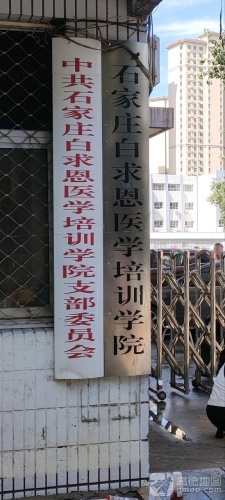 中共石家庄白求恩医学培训学院支部委员会
石家庄白求恩医学培训学院
高德地图
amap.com